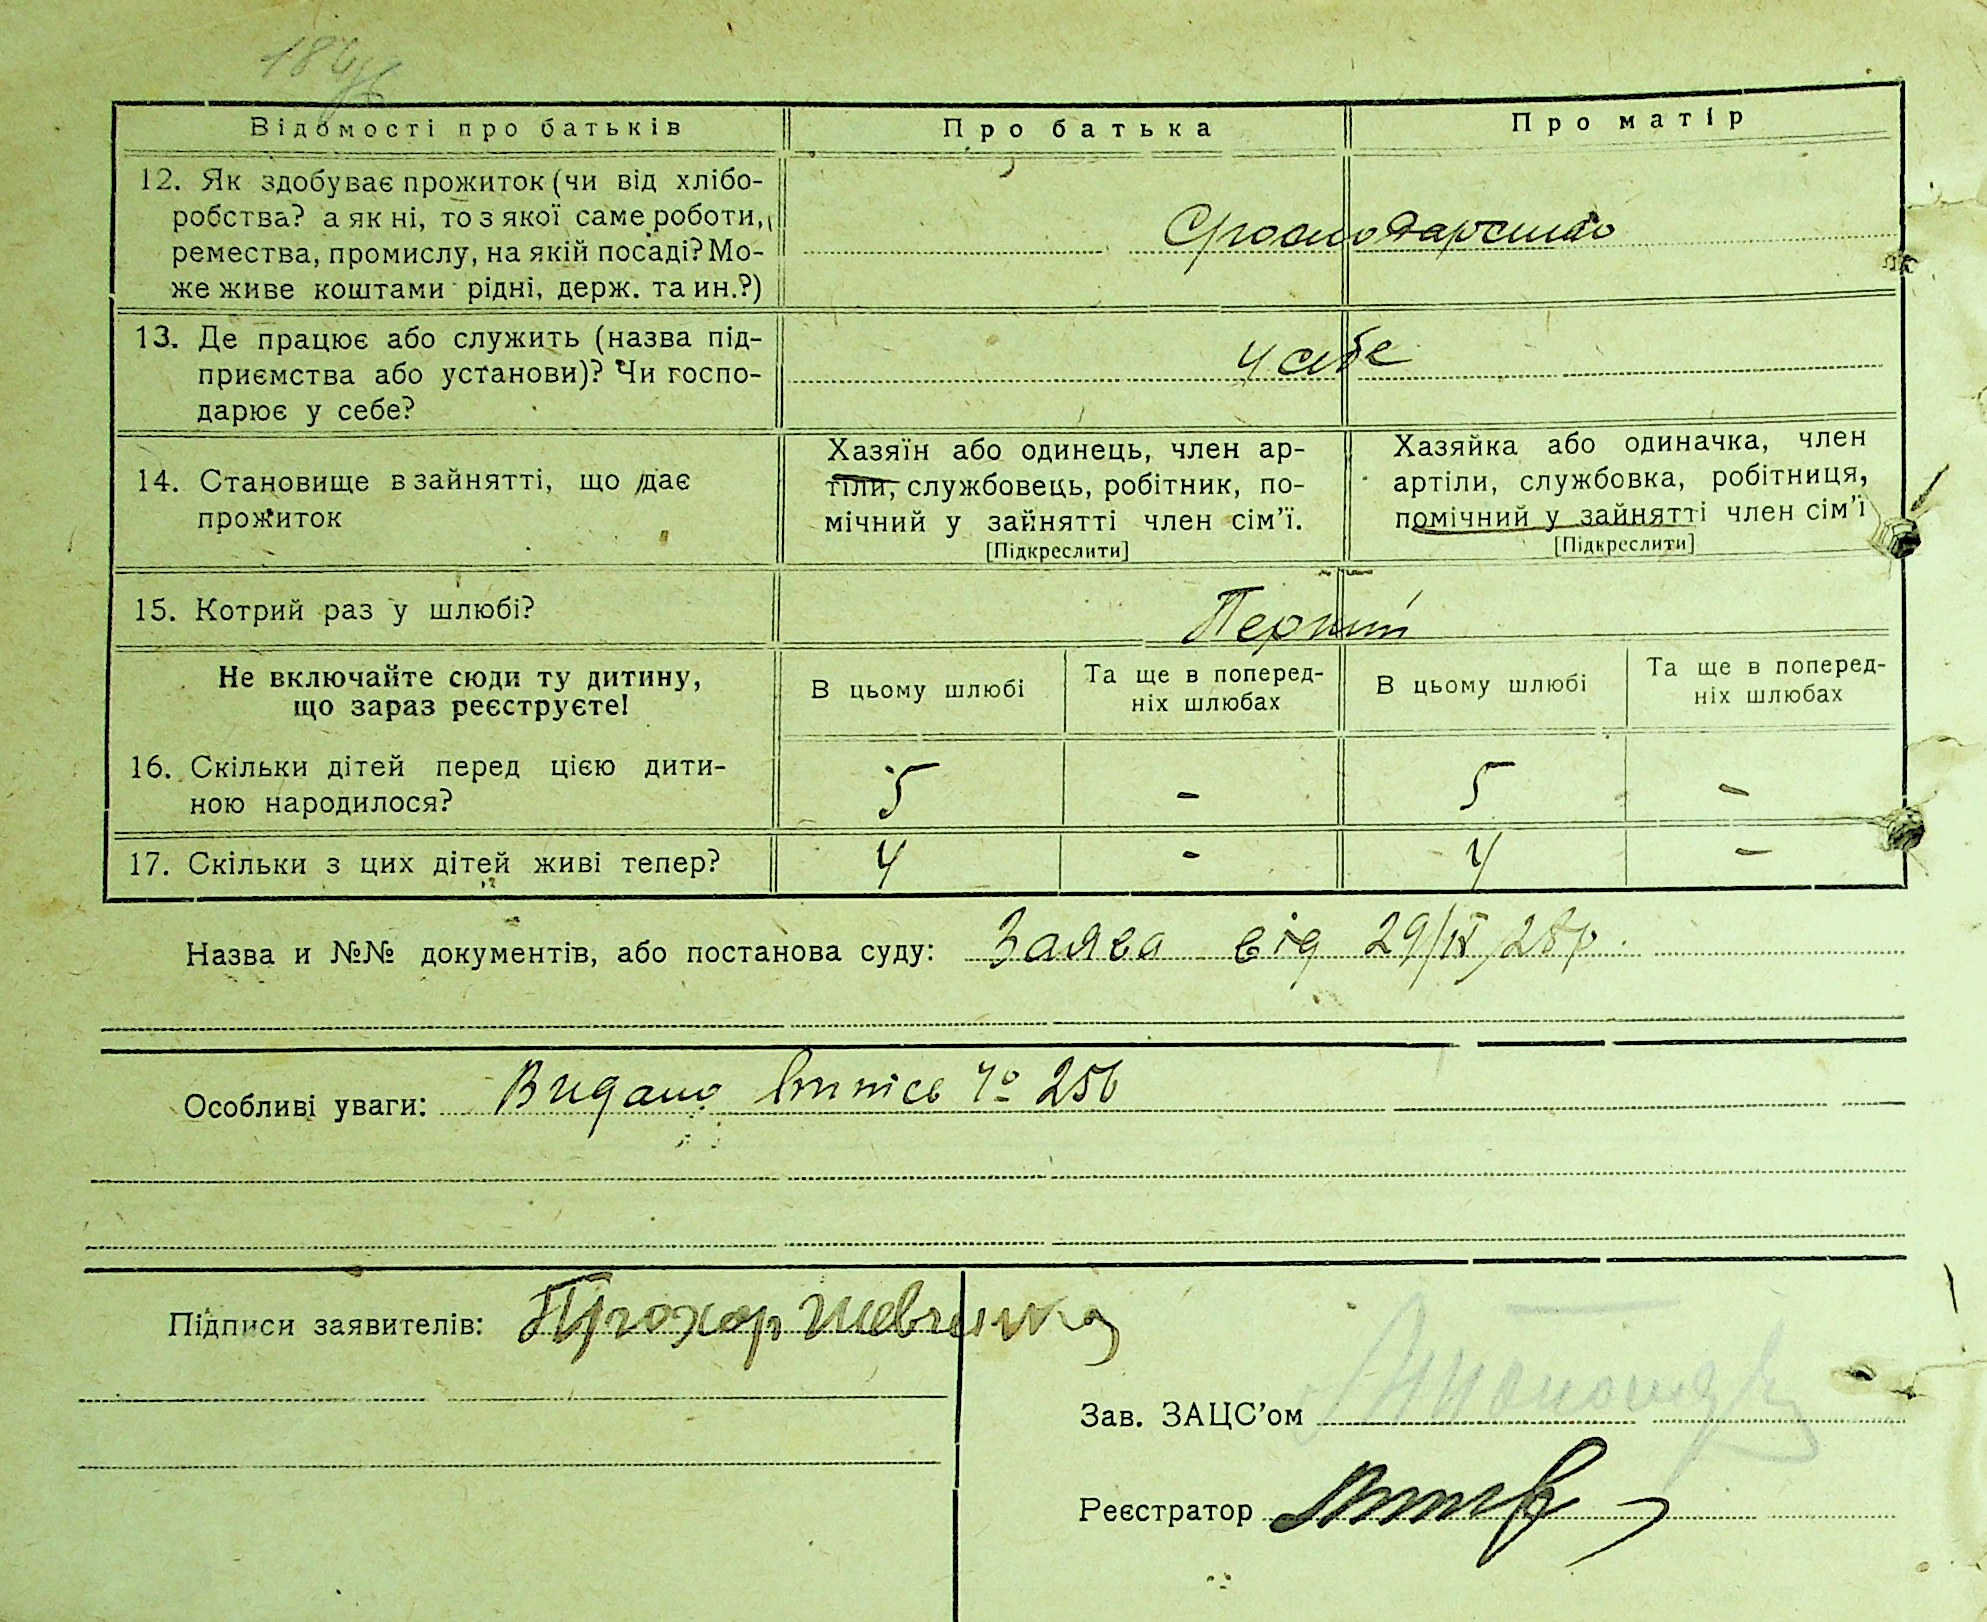 Відомості про батьків
Про батька
Про матір
12. Як здобуває прожиток (чи від хлібо-
робства? а як ні, то з якої саме роботи,
ремества, промислу, на якій посаді? Мо-
же живе коштами рідні, держ. та ин.?)
13. Де працює або служить (назва під-
приємства або установи)? Чи госпо-
дарює у себе?
у себе
14. Становище в зайнятті, що дає
прожиток
Хазяїн або одинець, член ар-
тіли, службовець, робітник, по-
мічний у зайнятті член сім'ї.
[Підкреслити]
Хазяйка або одиначка, член
артіли, службовка, робітниця,
помічний у зайнятті член сім'ї
[Підкреслити]
15. Котрий раз у шлюбі?
Перший
Не включайте сюди ту дитину,
що зараз реєструєте!
В цьому шлюбі
Та ще в поперед-
ніх шлюбах
В цьому шлюбі
Та ще в поперед-
ніх шлюбах
16. Скільки дітей перед цією дити-
ною народилося?
5 - 5 -
17. Скільки з цих дітей живі тепер?
4 - 4 -
Назва и №№ документів, або постанова суду: Заява від 29/IX 28р.
Особливі уваги: Видано випис № 256
Підписи заявителів: Прохор Шевченко
Зав. ЗАЦС'ом
Реєстратор